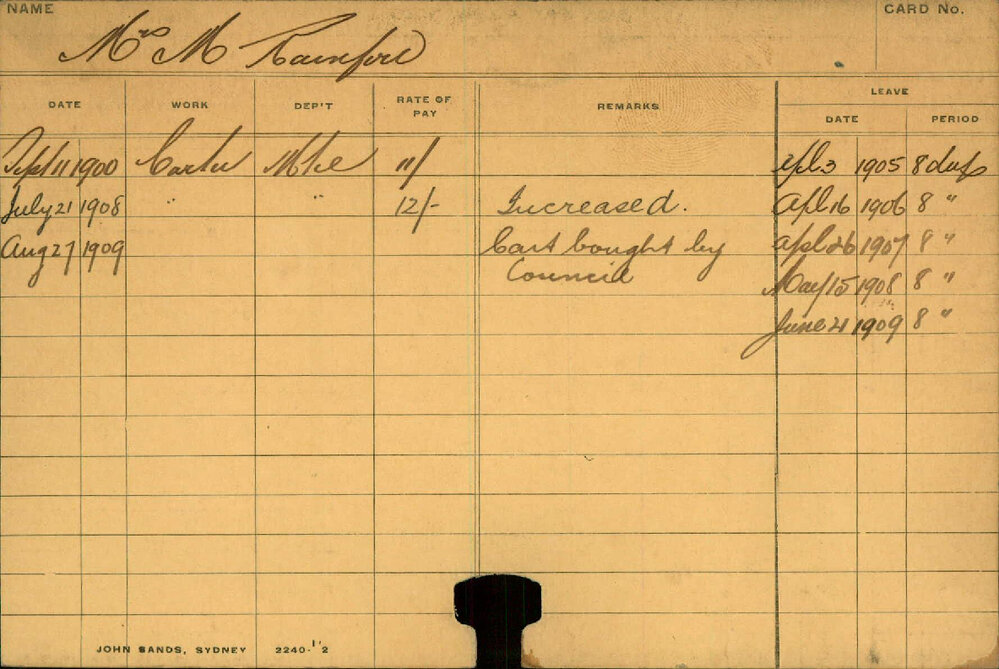 NAME
CARD No.
Mrs M Rainford
LEAVE
DATE WORK DEP'T RATE OF PAY REMARKS DATE PERIOD
Sept 11 1900 Carter 11/ Apl 3 1905 8 days
July 21 1908 " " 12/- Increased. Apl 16 1906 8 "
Aug 27 1909 Cart bought by Apl 26 1907 8 "
Council May 15 1908 8 "
June 21 1909 8 "
JOHN SANDS, SYDNEY 2240-